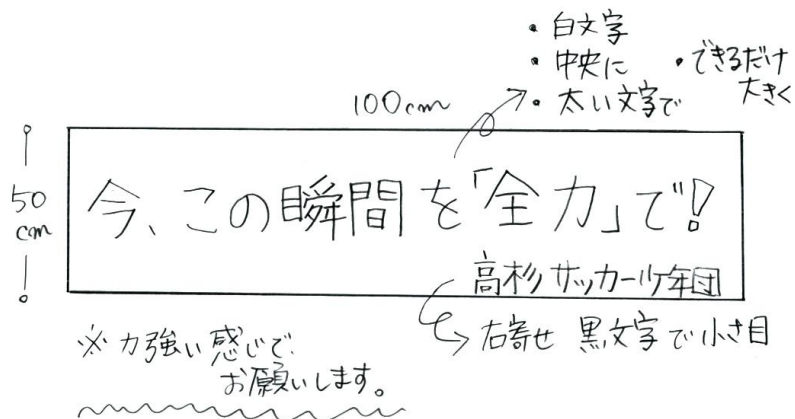 ・白文字
・中央に
・できるだけ
大きく
・太い文字で
100cm
50
cm
今、この瞬間を「全力」で!
高杉サッカー少年団
右寄せ 黒文字で小さ目
※力強い感じで
お願いします。